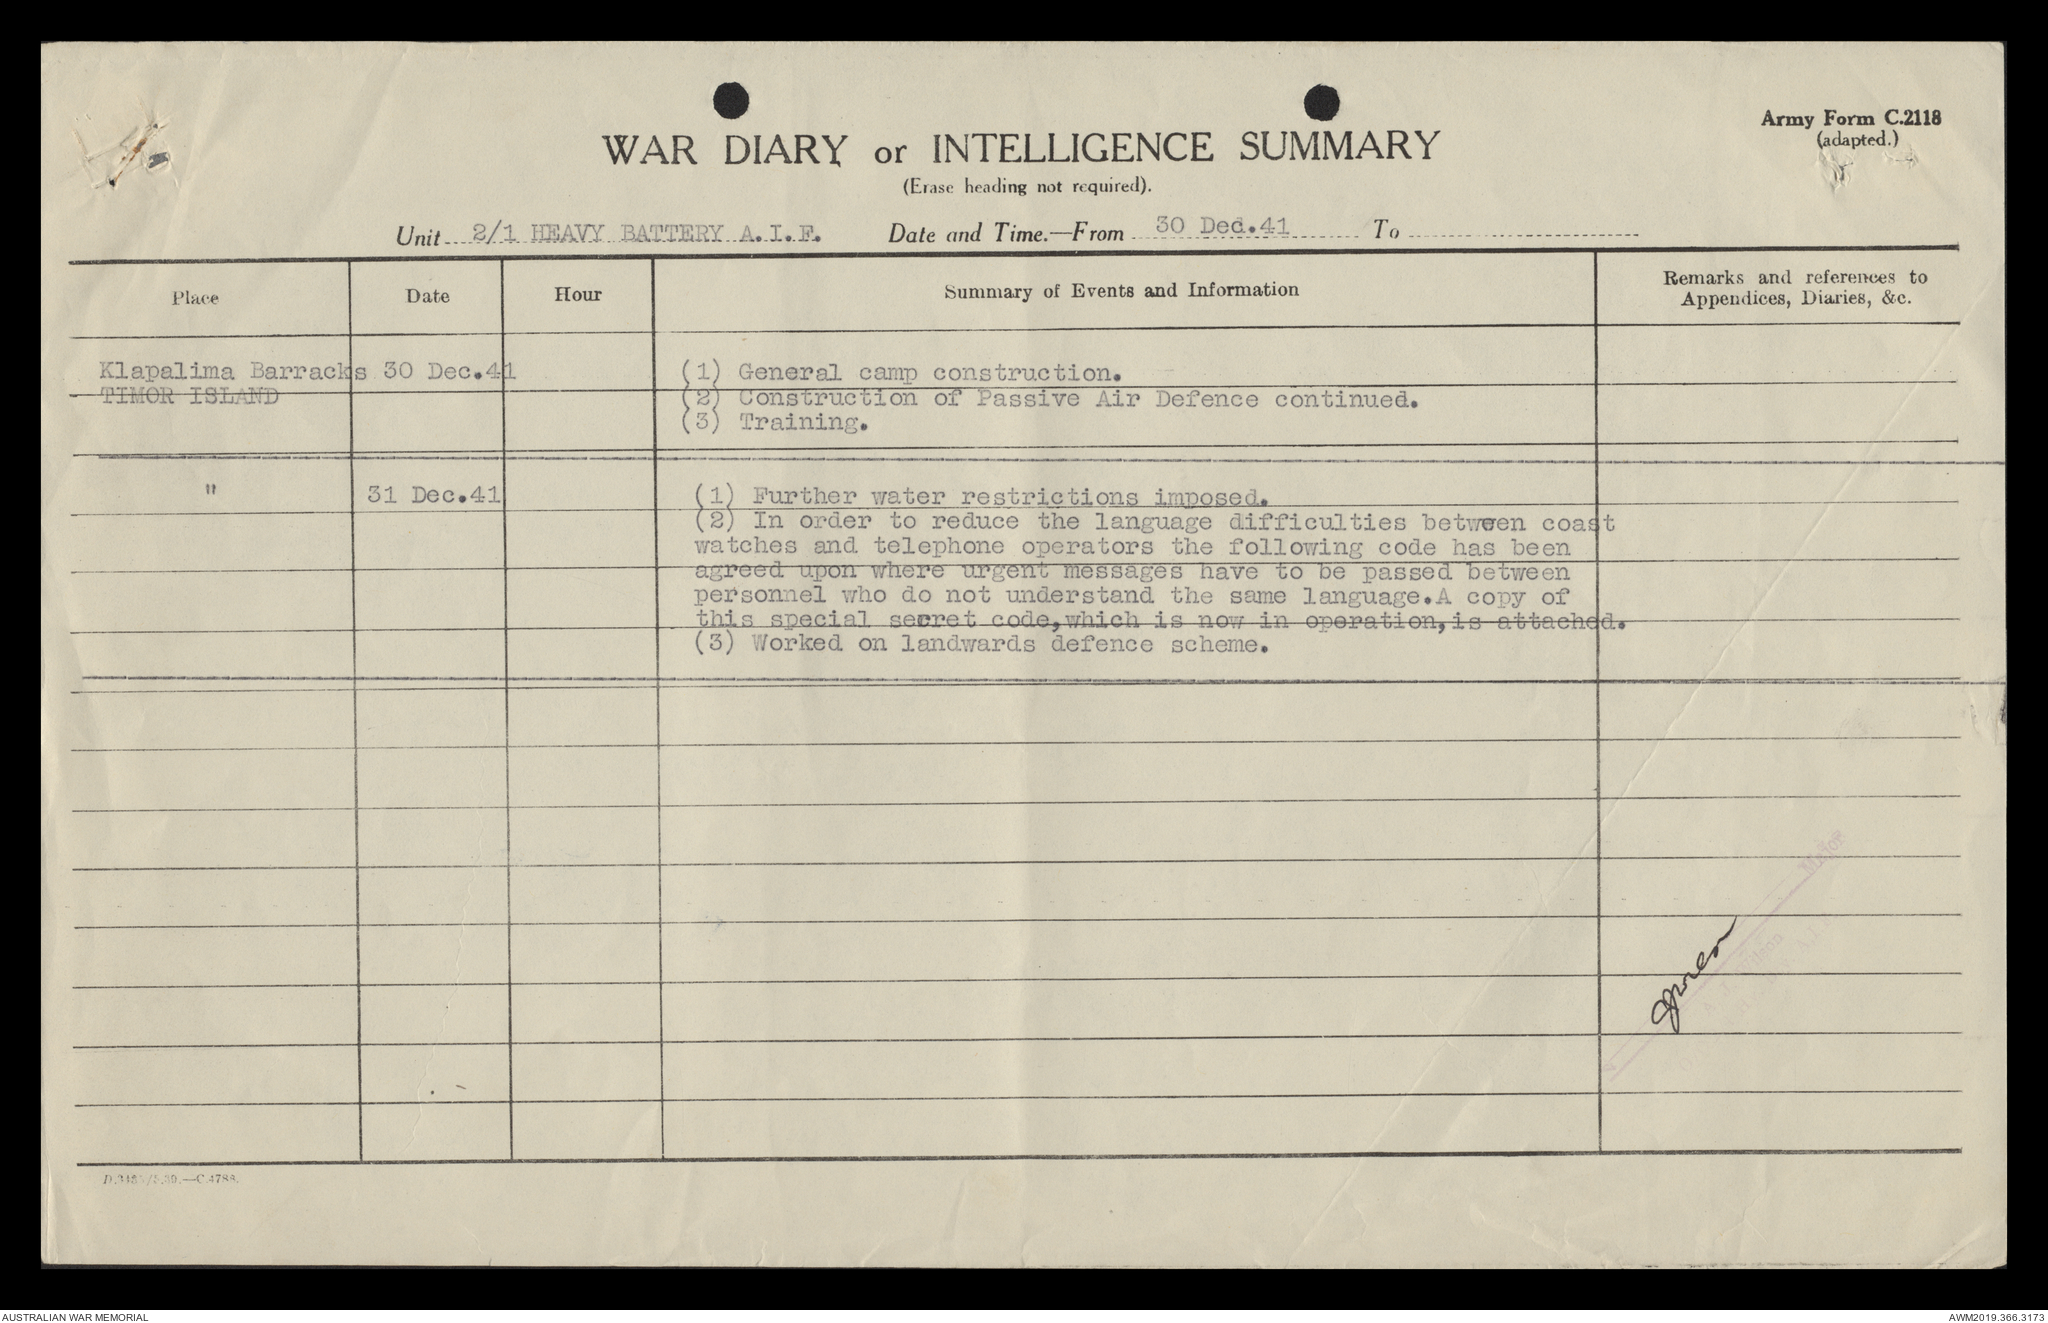 Army Form C.2118
(adapted.)
WAR DIARY or INTELLIGENCE SUMMARY
(Erase heading not required).
Unit 2/1 HEAVY BATTERY A.I.F. Date and Time.—From 30 Dec.41 To
Place Date Hour Summary of Events and Information Remarks and references to
Appendices, Diaries, &c.
Klapalima Barracks 30 Dec.41 (1) General camp construction.
TIMOR ISLAND (2) Construction of Passive Air Defence continued.
(3) Training.
" 31 Dec.41 (1) Further water restrictions imposed.
(2) In order to reduce the language difficulties between coast
watches and telephone operators the following code has been
agreed upon where urgent messages have to be passed between
personnel who do not understand the same language.A copy of
this special secret code,which is now in operation,is attached.
(3) Worked on landwards defence scheme.
Major
AUSTRALIAN WAR MEMORIAL AWM2019.366.3173